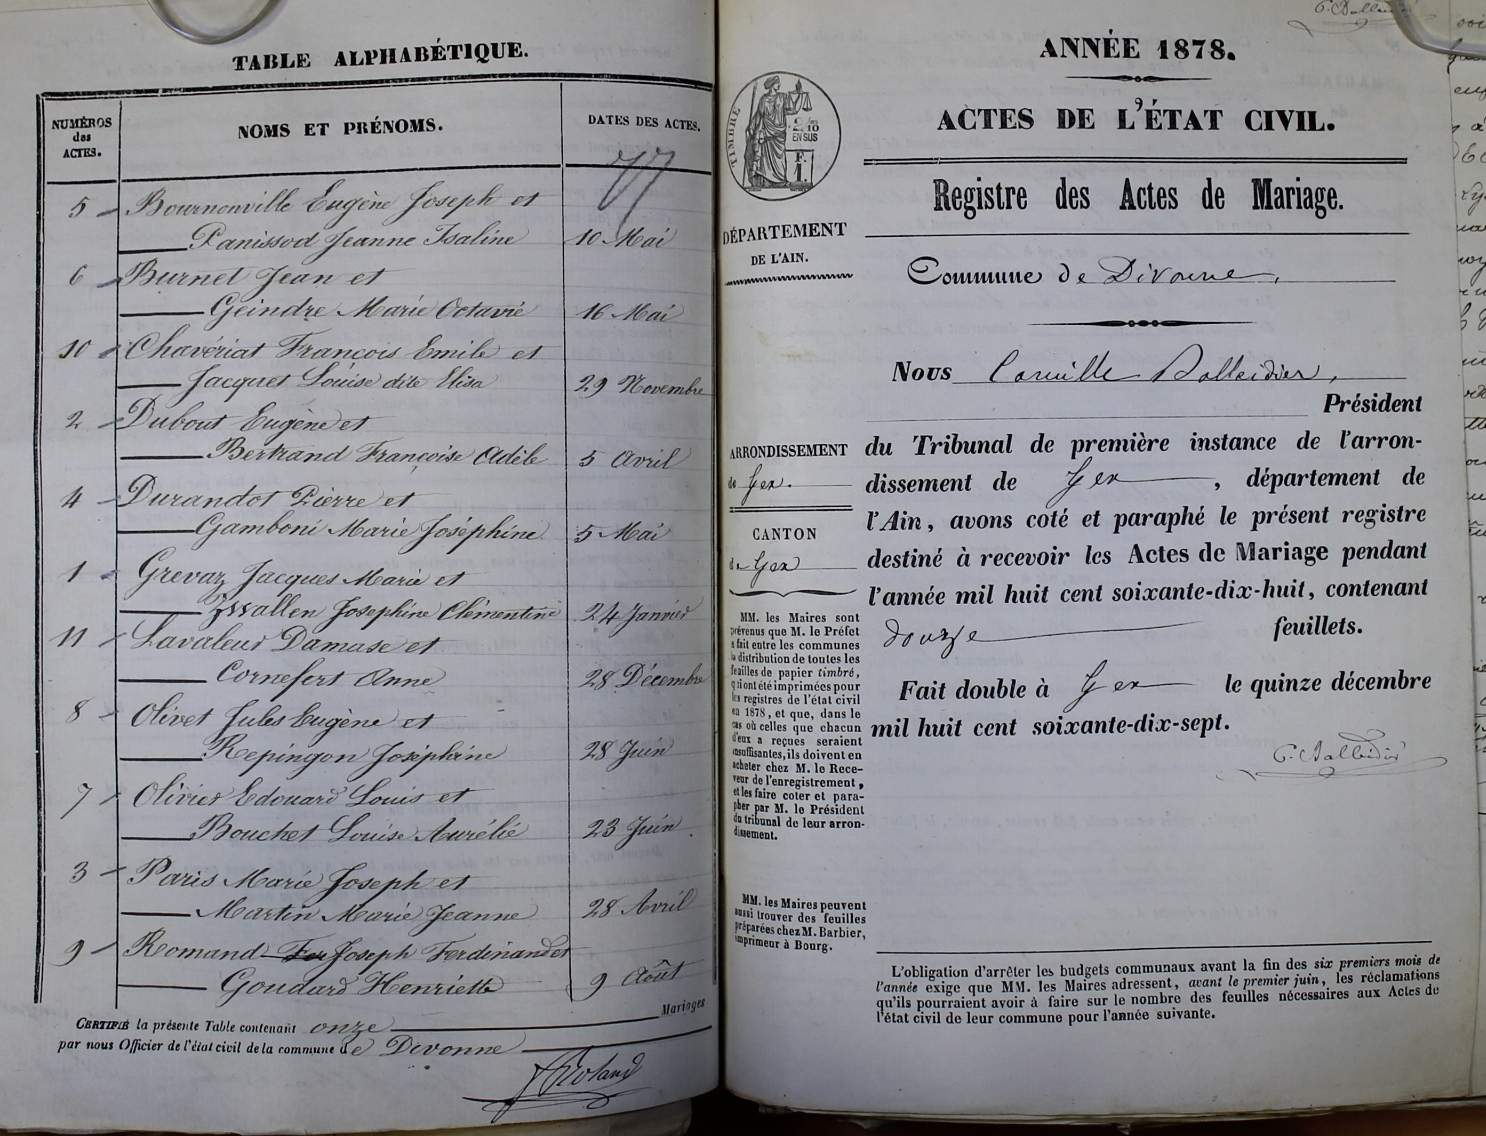 TABLE ALPHABÉTIQUE.
NUMÉROS
des
ACTES.
NOMS ET PRÉNOMS.
DATES DES ACTES.
77
5 Bournonville Eugène Joseph et
Panissod Jeanne Isaline 10 Mai
6 Burnet Jean et
Geindre Marie Octavie 16 Mai
10 Chavériat François Emile et
Jacquet Louise dite Elisa 29 Novembre
2 Dubout Eugène et
Bertrand Françoise Adèle 5 Avril
4 Durandot Pierre et
Gamboni Marie Joséphine 5 Mai
1 Grevaz Jacques Marie et
Zwallen Josephine Clémentine 24 Janvier
11 Lavaleur Damase et
Cornefert Anne 28 Décembre
8 Olivet Jules Eugène et
Repingon Joséphine 28 Juin
7 Olivier Edouard Louis et
Bouchet Louise Aurélie 23 Juin
3 Paris Marie Joseph et
Martin Marie Jeanne 28 Avril
9 Romand Joseph Ferdinand et
Goudard Henriette 9 Août
Mariages
CERTIFIÉ la présente Table contenant onze
par nous Officier de l'état civil de la commune de Divonne
Roland
ANNÉE 1878.
ACTES DE L'ÉTAT CIVIL.
Registre des Actes de Mariage.
TIMBRE
2/10
EN SUS
F.
1.
DÉPARTEMENT
DE L'AIN.
Commune de Divonne,
Nous Camille Balleidier,
Président
du Tribunal de première instance de l'arron-
dissement de Gex, département de
l'Ain, avons coté et paraphé le présent registre
destiné à recevoir les Actes de Mariage pendant
l'année mil huit cent soixante-dix-huit, contenant
douze feuillets.
Fait double à Gex le quinze décembre
mil huit cent soixante-dix-sept.
C. Balleidier
ARRONDISSEMENT
de Gex.
CANTON
de Gex
MM. les Maires sont
prévenus que M. le Préfet
a fait entre les communes
la distribution de toutes les
feuilles de papier timbré,
qui ont été imprimées pour
les registres de l'état civil
en 1878, et que, dans le
cas où celles que chacun
d'eux a reçues seraient
insuffisantes, ils doivent en
acheter chez M. le Rece-
veur de l'enregistrement,
et les faire coter et para-
pher par M. le Président
du tribunal de leur arron-
dissement.
MM. les Maires peuvent
aussi trouver des feuilles
préparées chez M. Barbier,
imprimeur à Bourg.
L'obligation d'arrêter les budgets communaux avant la fin des six premiers mois de
l'année exige que MM. les Maires adressent, avant le premier juin, les réclamations
qu'ils pourraient avoir à faire sur le nombre des feuilles nécessaires aux Actes de
l'état civil de leur commune pour l'année suivante.